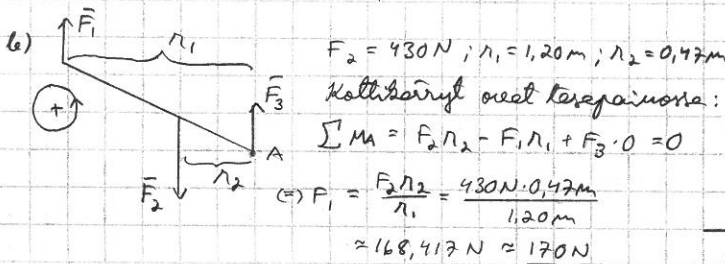 b)
F̄₁
r₁
+
F̄₃
A
r₂
F̄₂
F₂ = 430 N ; r₁ = 1,20 m ; r₂ = 0,47 m
Kottikärryt ovat tasapainossa :
∑ M_A = F₂r₂ - F₁r₁ + F₃·0 = 0
(=) F₁ = F₂r₂ / r₁ = 430 N · 0,47 m / 1,20 m
≈ 168,417 N ≈ 170 N